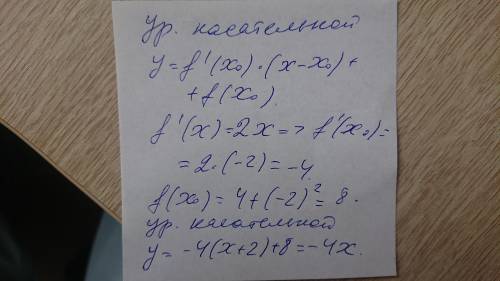 Ур. касательной
y = f'(x₀)·(x-x₀)+
+ f(x₀).
f'(x)=2x => f'(x₀)=
= 2·(-2) = -4.
f(x₀) = 4+(-2)² = 8.
Ур. касательной
y = -4(x+2)+8 = -4x.